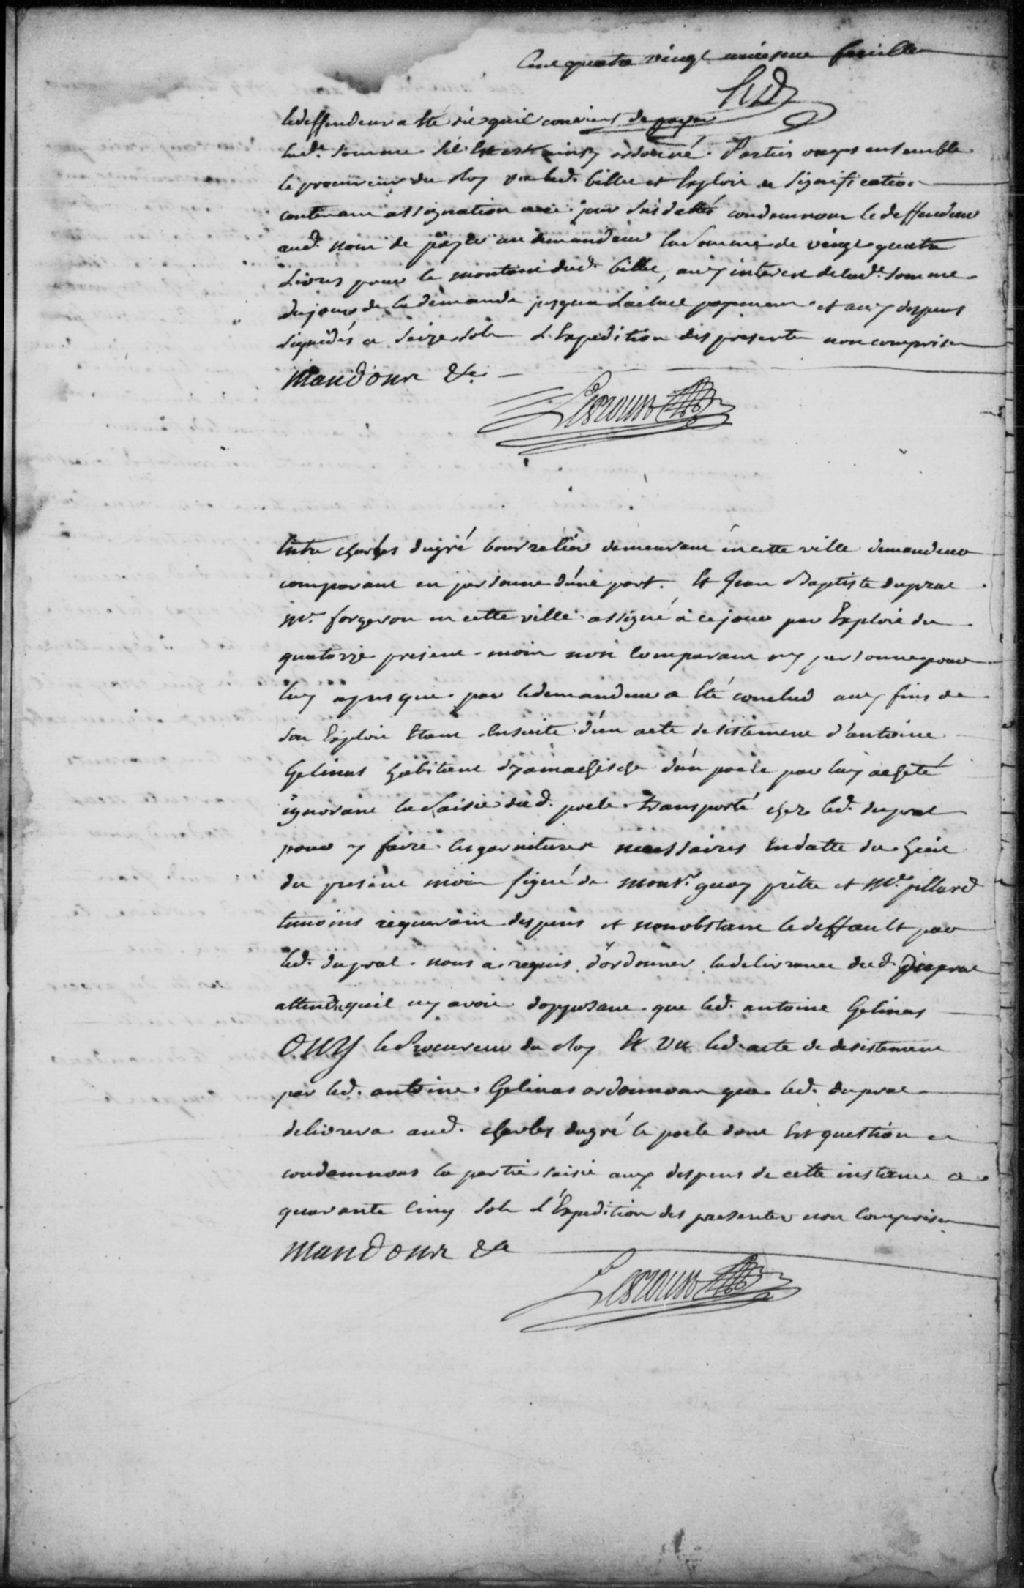 Cent quatre vingt onziesme feuille
ledeffendeur a été dit quil convient de payer
lad. somme sil est ainsy ordonné. Parties ouyes ensemble
le procureur du Roy vu led. billet et Exploit de signification
contenant assignation condamnons le deffendeur
aud. nom de payer au demandeur la somme de vingt quatre
livres pour le montant dud. billet, aux interest de lad. somme
du jour de la demande jusqua lactuel payement et aux depens
liquidés a seize sols L'Expedition des presente non comprise
Mandons &a
Leproust
Entre charles dugré bourrelier demeurant en cette ville demandeur
comparant en personne d'une part. Et Jean Baptiste duprat
Mr. forgeron en cette ville assigné à ce jour par Exploit du
quatorze present mois non comparant ny personne pour
luy apres que par ledemandeur a été conclud aux fins de
son Exploit Etant Ensuite d'un acte desistement d'antoine
Gelinas habitant d'yamachiche d'un poele par luy acheté
ignorant la saisie dud. poele transporté chez led. duprat
pour y faire les garnitures necessaires Endatte du huit
du present mois signé de Monsr. guay prêtre et Mr. pillard
temoins requerrant depens et nonobstant le deffault par
led. duprat nous a requis d'ordonner la delivrance dud. Duprat
attendu quil ny avoit d'opposant que led. antoine Gelinas
OUY le Procureur du Roy Et Vu led. acte de desistement
par led. antoine Gelinas ordonnons que led. duprat
delivrera aud. charles dugré le poele dont Est question et
condamnons la partie saisie aux depens de cette instance a
quarante cinq sols L'Expedition des presentes non comprise
Mandons &a
Leproust